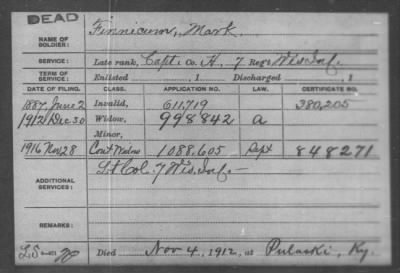 DEAD
NAME OF SOLDIER: Finnicum, Mark.
SERVICE: Late rank, Capt. Co. H, 7 Reg't Wis. Inf.
TERM OF SERVICE: Enlisted , 1 Discharged , 1
DATE OF FILING. CLASS. APPLICATION NO. LAW. CERTIFICATE NO.
1887, June 2 Invalid, 611,719 380,205
1912 Dec 30 Widow, 998842 a
Minor,
1916 Nov 28 Cont Widow 1088,605 Sept 848271
ADDITIONAL SERVICES: Lt Col. 7 Wis. Inf.—
REMARKS:
Died Nov 4, 1912, at Pulaski, Ky.